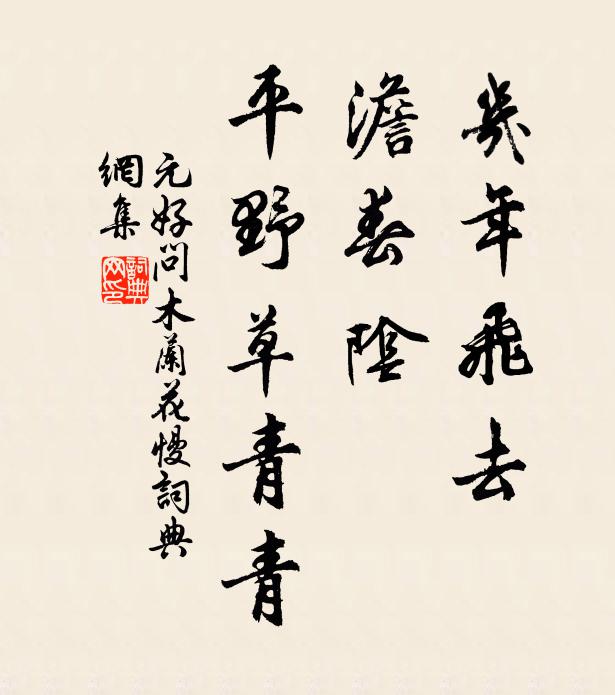 幾年飛去
澹春陰
平野草青青
元好問木蘭花慢詞典
網集
詞典網印